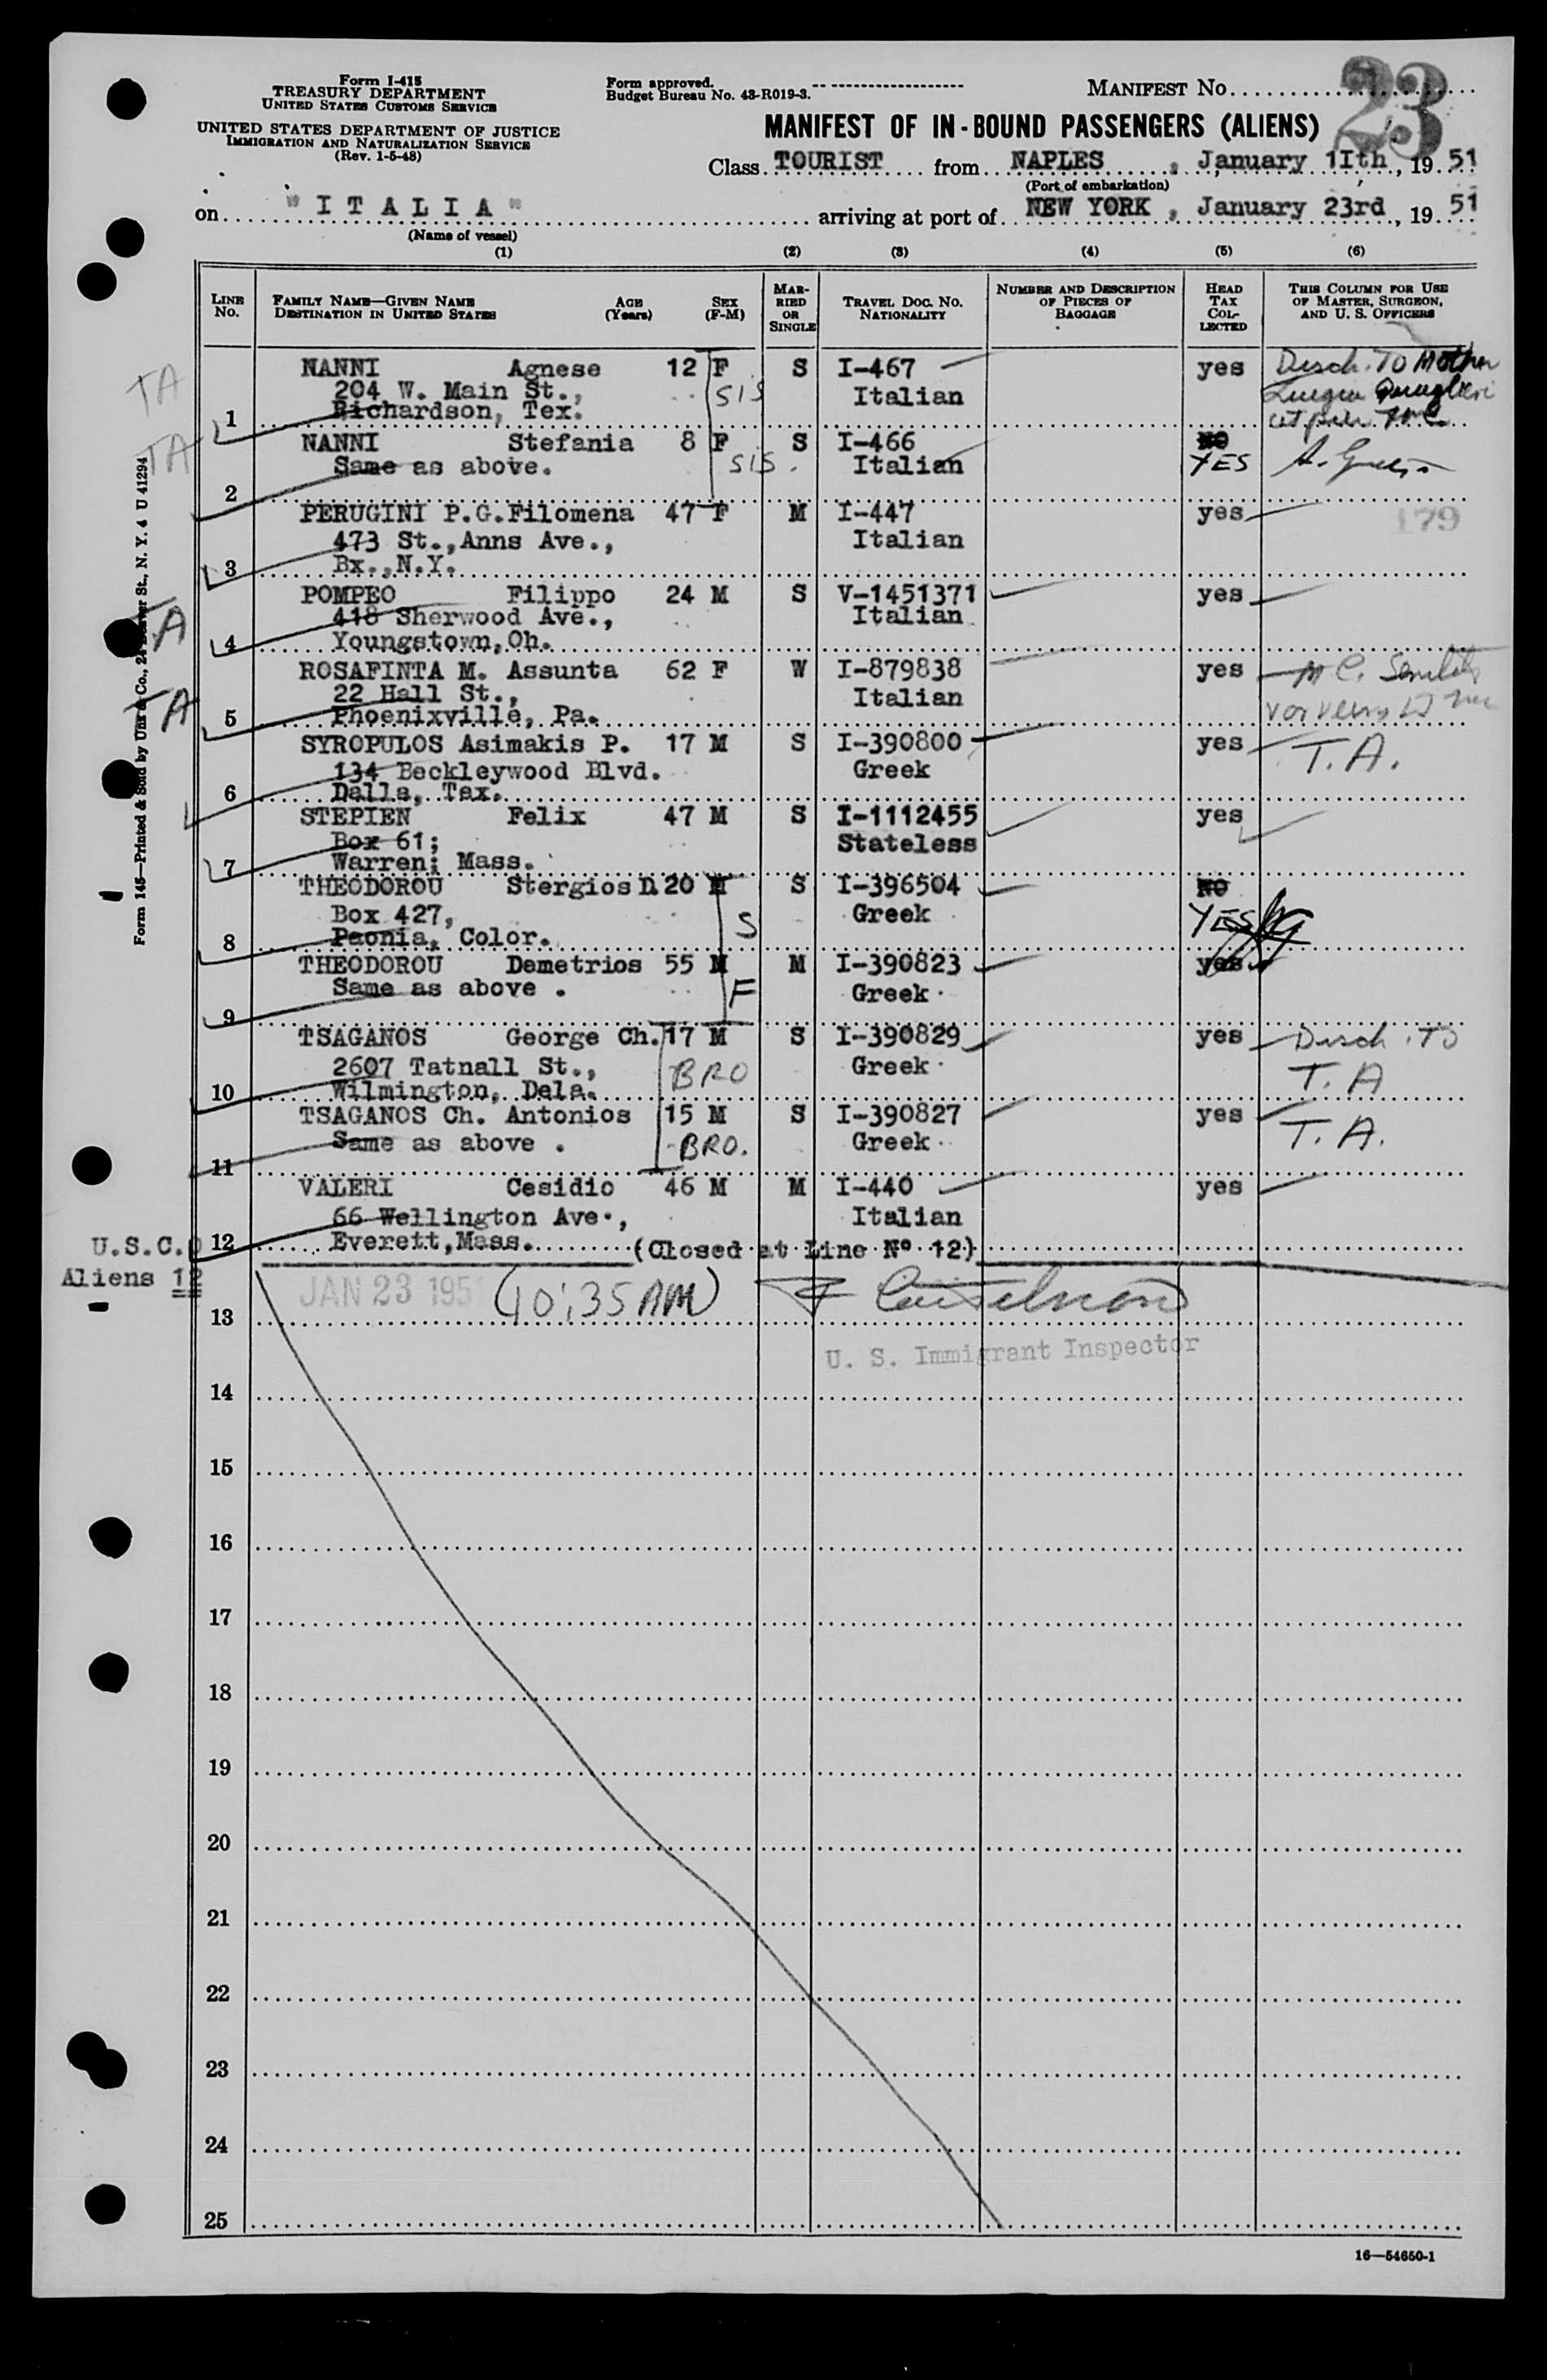 Form I-415
TREASURY DEPARTMENT
UNITED STATES CUSTOMS SERVICE
UNITED STATES DEPARTMENT OF JUSTICE
IMMIGRATION AND NATURALIZATION SERVICE
(Rev. 1-5-48)
Form approved.
Budget Bureau No. 43-R019-3.
MANIFEST No.
23
MANIFEST OF IN-BOUND PASSENGERS (ALIENS)
Class TOURIST from NAPLES, January 11th, 1951
(Port of embarkation)
on "ITALIA" arriving at port of NEW YORK, January 23rd, 1951
(Name of vessel)
(1) (2) (3) (4) (5) (6)
LINE No. FAMILY NAME—GIVEN NAME DESTINATION IN UNITED STATES AGE (Years) SEX (F-M) MARRIED OR SINGLE TRAVEL DOC. No. NATIONALITY NUMBER AND DESCRIPTION OF PIECES OF BAGGAGE HEAD TAX COLLECTED THIS COLUMN FOR USE OF MASTER, SURGEON, AND U. S. OFFICERS
TA
NANNI Agnese 12 F S I-467 yes Disch. To Mother
204 W. Main St., SIS Italian
1 Richardson, Tex.
TA
NANNI Stefania 8 F S I-466 NO
Same as above. SIS. Italian YES
2
PERUGINI P.G.Filomena 47 F M I-447 yes 179
473 St.,Anns Ave., Italian
3 Bx.,N.Y.
POMPEO Filippo 24 M S V-1451371 yes
TA 418 Sherwood Ave., Italian
4 Youngstown,Oh.
ROSAFINTA M. Assunta 62 F W I-879838 yes
TA 22 Hall St., Italian
5 Phoenixville, Pa.
SYROPULOS Asimakis P. 17 M S I-390800 yes T.A.
134 Beckleywood Blvd. Greek
6 Dalls, Tex.
STEPIEN Felix 47 M S I-1112455 yes
Box 61; Stateless
7 Warren; Mass.
THEODOROU Stergios D. 20 M S I-396504 NO
Box 427, S Greek YES
8 Paonia, Color.
THEODOROU Demetrios 55 M M I-390823 yes
Same as above . F Greek
9
TSAGANOS George Ch. 17 M S I-390829 yes Disch. To
2607 Tatnall St., BRO Greek T.A
10 Wilmington, Dela.
TSAGANOS Ch. Antonios 15 M S I-390827 yes T.A.
Same as above . BRO. Greek
11
VALERI Cesidio 46 M M I-440 yes
66 Wellington Ave., Italian
12 Everett,Mass. (Closed at Line No 12)
U.S.C. 0
Aliens 12
JAN 23 1951 (10:35 AM)
U. S. Immigrant Inspector
13
14
15
16
17
18
19
20
21
22
23
24
25
16—54650-1
Form 145—Printed & Sold by Unz & Co., 24 Beaver St., N. Y. 4 U 41294